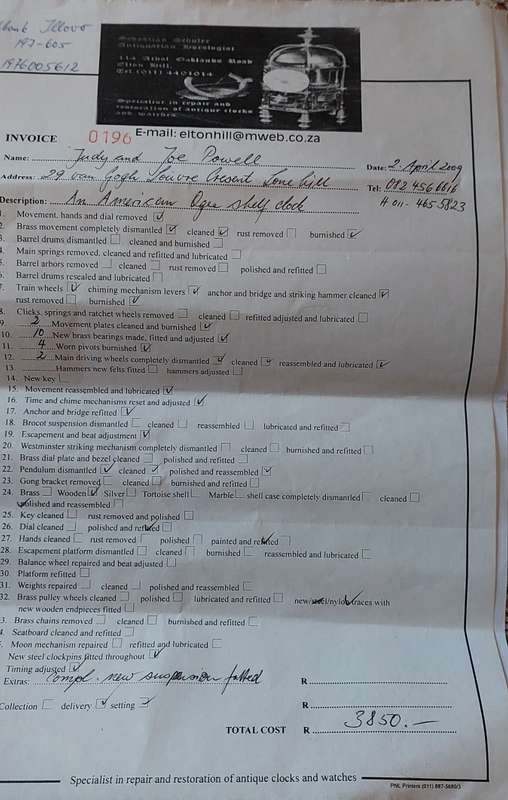 197-605
1976005612
Sebastian Schuler
Antiquarian Horologist
114 Athol Oaklands Road
Elton Hill,
Tel. (011) 4401014
Specialist in repair and
restoration of antique clocks
and watches.
E-mail: eltonhill@mweb.co.za
INVOICE 0196
Name: Judy and Joe Powell Date: 2 April 2009
Address: 29 van Gogh Louvre Cresent Lone hill Tel: 082 456 6616
H 011- 465 5823
Description: An American Ogee shelf clock
1. Movement, hands and dial removed ☑
2. Brass movement completely dismantled ☑ cleaned ☑ rust removed ☐ burnished ☑
3. Barrel drums dismantled ☐ cleaned and burnished ☐
4. Main springs removed, cleaned and refitted and lubricated ☐
5. Barrel arbors removed ☐ cleaned ☐ rust removed ☐ polished and refitted ☐
6. Barrel drums resealed and lubricated ☐
7. Train wheels ☑ chiming mechanism levers ☑ anchor and bridge and striking hammer cleaned ☑
rust removed ☐ burnished ☑
8. Clicks, springs and ratchet wheels removed ☐ cleaned ☐ refitted adjusted and lubricated ☐
9. 2 Movement plates cleaned and burnished ☑
10. 10 New brass bearings made, fitted and adjusted ☑
11. 4 Worn pivots burnished ☑
12. 2 Main driving wheels completely dismantled ☑ cleaned ☑ reassembled and lubricated ☑
13. Hammers new felts fitted ☐ hammers adjusted ☐
14. New key ☐
15. Movement reassembled and lubricated ☑
16. Time and chime mechanisms reset and adjusted ☑
17. Anchor and bridge refitted ☑
18. Brocot suspension dismantled ☐ cleaned ☐ reassembled ☐ lubricated and refitted ☐
19. Escapement and beat adjustment ☑
20. Westminster striking mechanism completely dismantled ☐ cleaned ☐ burnished and refitted ☐
21. Brass dial plate and bezel cleaned ☐ polished and refitted ☐
22. Pendulum dismantled ☑ cleaned ☑ polished and reassembled ☑
23. Gong bracket removed ☐ cleaned ☐ burnished and refitted ☐
24. Brass ☐ Wooden ☑ Silver ☐ Tortoise shell ☐ Marble ☐ shell case completely dismantled ☐ cleaned ☐
polished and reassembled ☐
25. Key cleaned ☐ rust removed and polished ☐
26. Dial cleaned ☐ polished and refitted ☐
27. Hands cleaned ☐ rust removed ☐ polished ☐ painted and refitted ☐
28. Escapement platform dismantled ☐ cleaned ☐ burnished ☐ reassembled and lubricated ☐
29. Balance wheel repaired and beat adjusted ☐
30. Platform refitted ☐
31. Weights repaired ☐ cleaned ☐ polished and reassembled ☐
32. Brass pulley wheels cleaned ☐ polished ☐ lubricated and refitted ☐ new/steel/nylon/traces with
new wooden endpieces fitted ☐
3. Brass chains removed ☐ cleaned ☐ burnished and refitted ☐
4. Seatboard cleaned and refitted ☐
Moon mechanism repaired ☐ refitted and lubricated ☐
New steel clockpins fitted throughout ☑
Timing adjusted ☑
Extras: Compl. new suspension fitted R
Collection ☐ delivery ☑ setting ☑ R
TOTAL COST R 3850.—
Specialist in repair and restoration of antique clocks and watches
PNL Printers (011) 887-5680/3